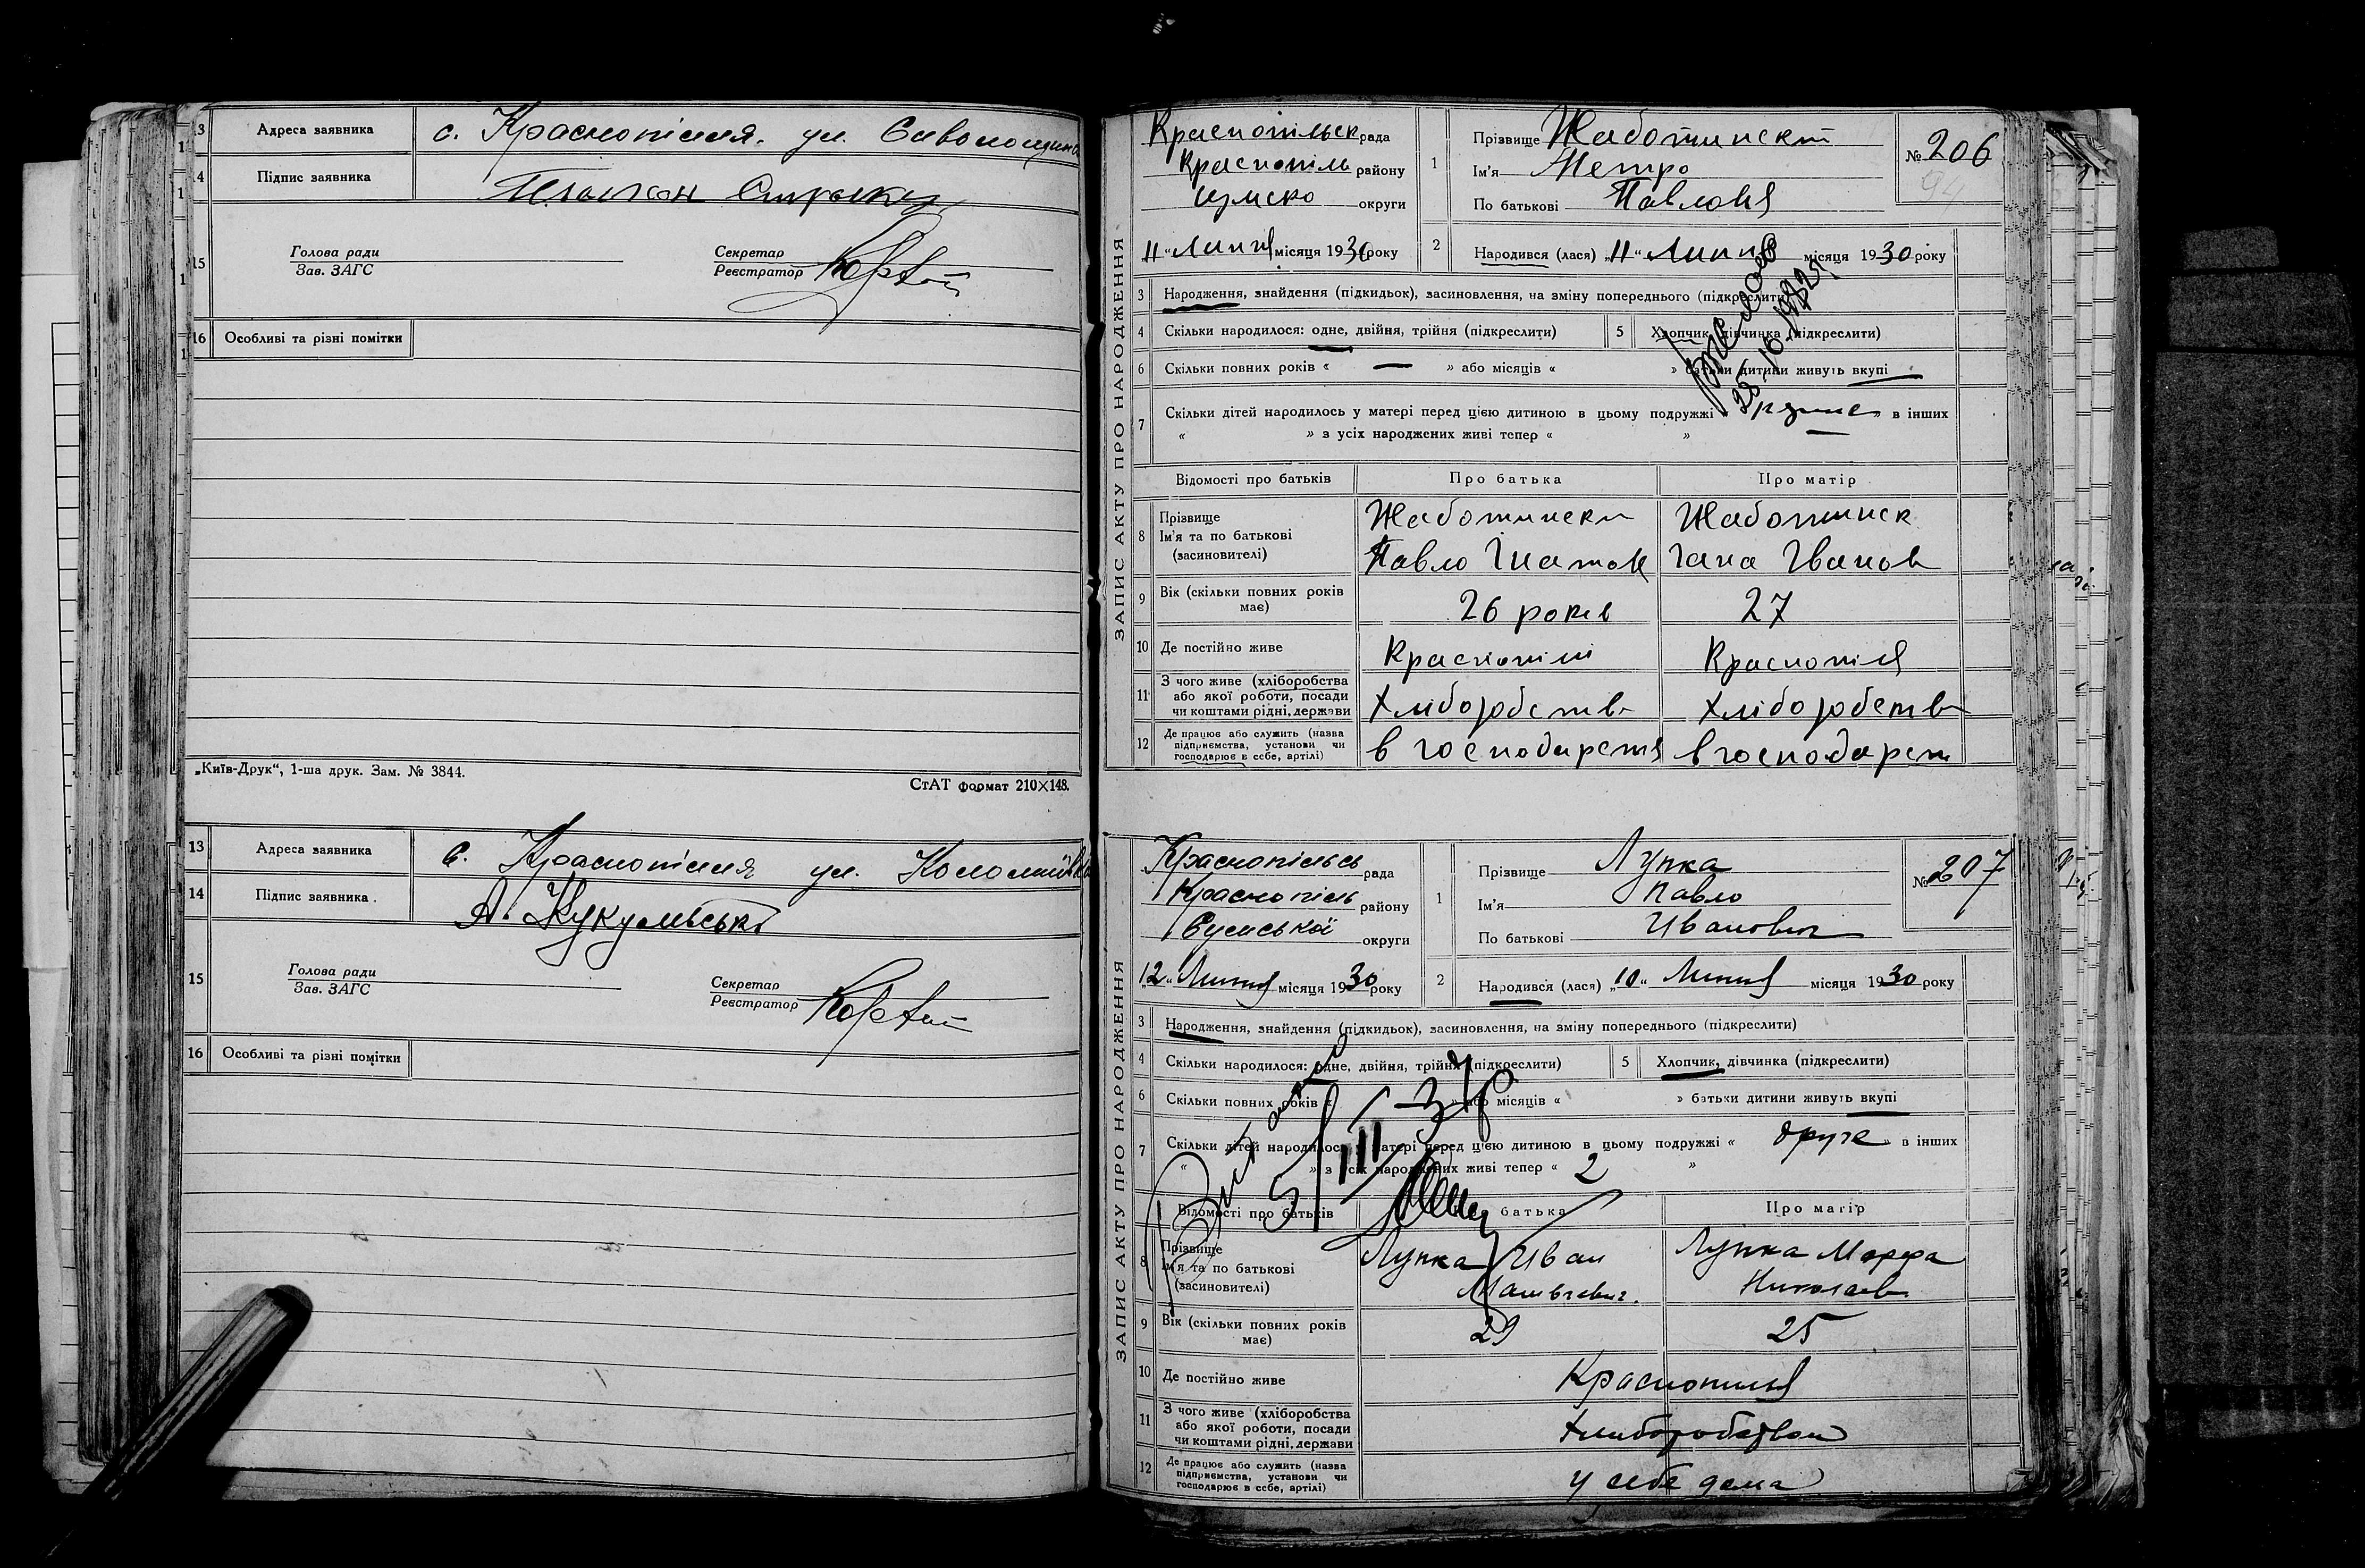 13 Адреса заявника с. Краснопілля. ул.
14 Підпис заявника
15 Голова ради Секретар
Зав. ЗАГС Реєстратор
16 Особливі та різні помітки
„Київ-Друк“, 1-ша друк. Зам. № 3844. СтАТ формат 210×148.
13 Адреса заявника с. Краснопілля ул.
14 Підпис заявника. А.
15 Голова ради Секретар
Зав. ЗАГС Реєстратор
16 Особливі та різні помітки
ЗАПИС АКТУ ПРО НАРОДЖЕННЯ
Краснопільск рада
Краснопіль району
округи
„11“ Липня місяця 1930 року
№ 206
94
1 Прізвище Жаботинский
Ім'я Петро
По батькові Павлов
2 Народився (лася) „11“ Липня місяця 1930 року
3 Народження, знайдення (підкидьок), засиновлення, на зміну попереднього (підкреслити)
4 Скільки народилося: одне, двійня, трійня (підкреслити) 5 Хлопчик, дівчинка (підкреслити)
6 Скільки повних років « — » або місяців « » батьки дитини живуть вкупі
7 Скільки дітей народилось у матері перед цією дитиною в цьому подружжі « » в інших
« » з усіх народжених живі тепер « »
Відомості про батьків Про батька Про матір
8 Прізвище Жаботински Жаботинск
Ім'я та по батькові Павло Гнатов Гана Іванов
(засиновителі)
9 Вік (скільки повних років має) 26 років 27
10 Де постійно живе Краснопілі Краснопіля
11 З чого живе (хліборобства Хліборобств Хліборобств
або якої роботи, посади
чи коштами рідні, держави
12 Де працює або служить (назва в господарстві в господарст
підприємства, установи чи
господарює в себе, артілі)
ЗАПИС АКТУ ПРО НАРОДЖЕННЯ
Краснопільсь рада
Краснопіль району
Сумської округи
„12“ Липня місяця 1930 року
№ 207
1 Прізвище Лупка
Ім'я Павло
По батькові Иванович
2 Народився (лася) „10“ Липня місяця 1930 року
3 Народження, знайдення (підкидьок), засиновлення, на зміну попереднього (підкреслити)
4 Скільки народилося: одне, двійня, трійня (підкреслити) 5 Хлопчик, дівчинка (підкреслити)
6 Скільки повних років « » або місяців « » батьки дитини живуть вкупі
7 Скільки дітей народилось у матері перед цією дитиною в цьому подружжі « друге » в інших
« » з усіх народжених живі тепер « 2 »
Відомості про батьків Про батька Про матір
8 Прізвище Лупка Иван Лупка Марфа
Ім'я та по батькові Матвеевич. Николаев
(засиновителі)
9 Вік (скільки повних років має) 29 25
10 Де постійно живе Краснопилья
11 З чого живе (хліборобства
або якої роботи, посади
чи коштами рідні, держави
12 Де працює або служить (назва у себе дома
підприємства, установи чи
господарює в себе, артілі)